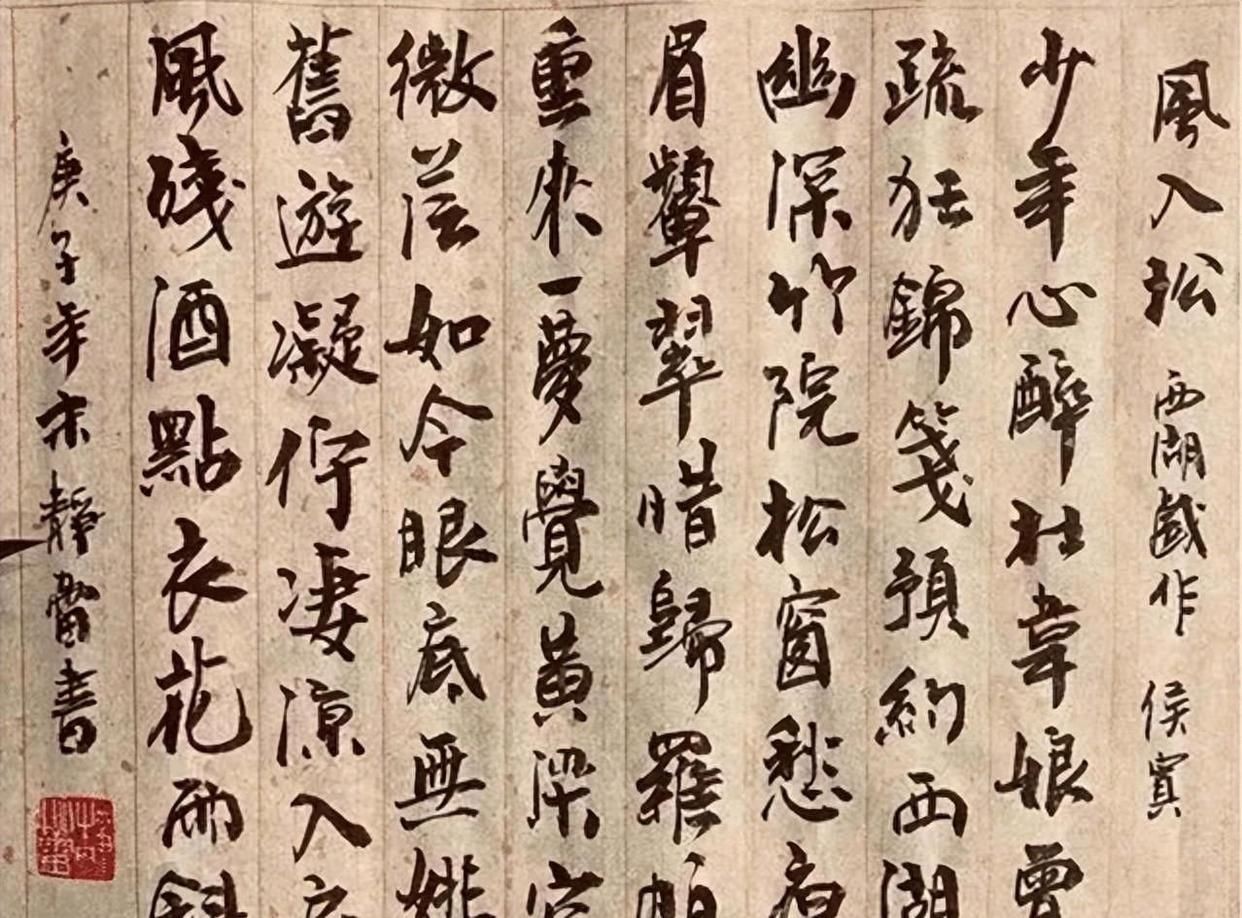 風入松 西湖戲作 侯寘
少年心醉杜韋娘曾
疏狂錦箋預約西湖
幽深竹院松窗愁
眉顰翠惜歸羅帕
重來一夢覺黃粱空
微茫如今眼底無姚
舊遊凝佇淒涼入
風殘酒點衣花雨斜
庚子年末靜蕾書